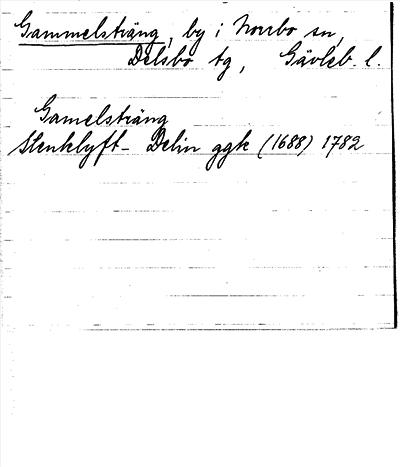 Gammelsträng, by i Norrbo sn,
Delsbo tg, Gävleb. l.
Gamelsträng
Stenklyft- Delin ggk (1688) 1782